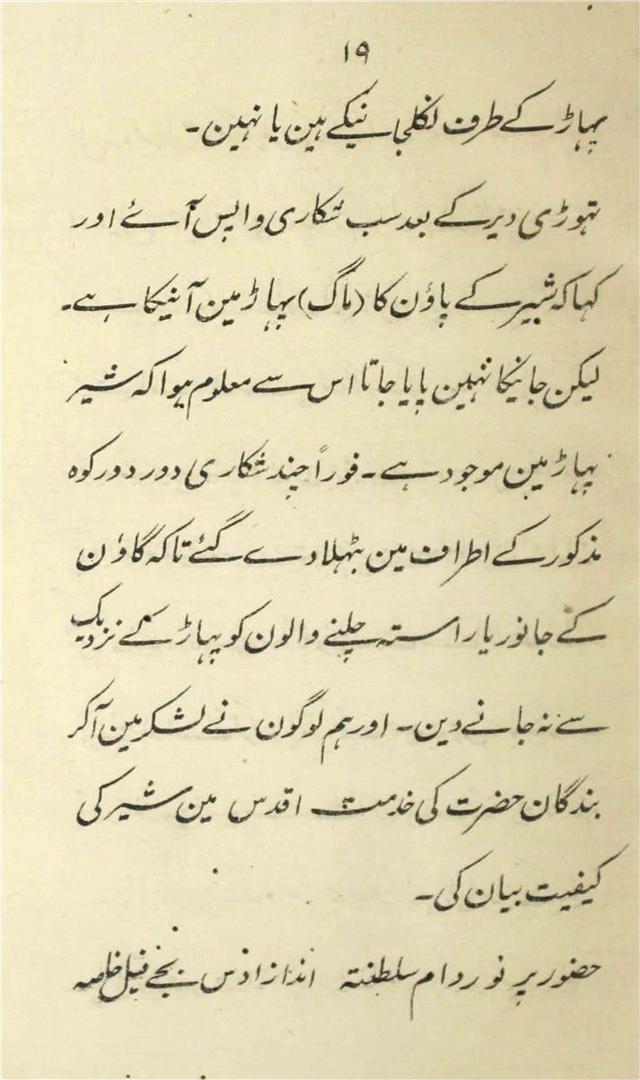 ۱۹
پہاڑ کے طرف نکلجانیکے ہین یا نہین۔
تہوڑی دیر کے بعد سب شکاری واپس آئے اور
کہا کہ شیر کے پاؤن کا (ماگ) پہاڑ مین آنیکا ہے۔
لیکن جانیکا نہین پایا جاتا اس سے معلوم ہوا کہ شیر
پہاڑ مین موجود ہے۔ فوراً چند شکاری دور دور کوہ
مذکور کے اطراف مین بٹہلا دے گئے تاکہ گاؤن
کے جانور یا راستہ چلنے والون کو پہاڑ کے نزدیک
سے نہ جانے دین۔ اور ہم لوگون نے لشکر مین آکر
بندگان حضرت کی خدمت اقدس مین شیر کی
کیفیت بیان کی۔
حضور پر نور دام سلطنتہ انداز دس بجے فیل خاصہ